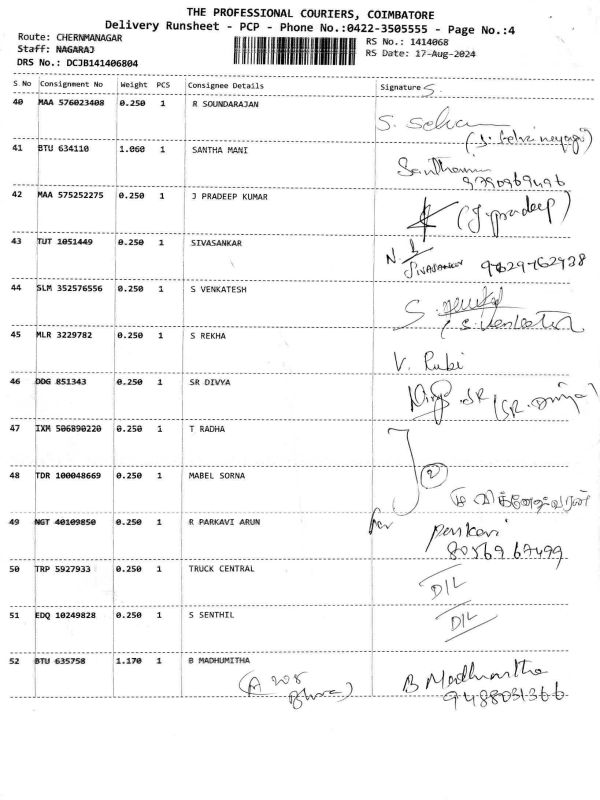 THE PROFESSIONAL COURIERS, COIMBATORE
Delivery Runsheet - PCP - Phone No.:0422-3505555 - Page No.:4
Route: CHERNMANAGAR
RS No.: 1414068
Staff: NAGARAJ
RS Date: 17-Aug-2024
DRS No.: DCJB141406804
S No Consignment No Weight PCS Consignee Details Signature S.
40 MAA 576023408 0.250 1 R SOUNDARAJAN
S.
41 BTU 634110 1.060 1 SANTHA MANI
9790969496
42 MAA 575252275 0.250 1 J PRADEEP KUMAR
(J.pradeep)
43 TUT 1051449 0.250 1 SIVASANKAR
N. SIVASANKAR 9629762938
44 SLM 352576556 0.250 1 S VENKATESH
S.
45 MLR 3229782 0.250 1 S REKHA
V. Rubi
46 DDG 851343 0.250 1 SR DIVYA
SR (SR. Divya)
47 IXM 506890220 0.250 1 T RADHA
48 TDR 100048669 0.250 1 MABEL SORNA
2
விக்னேஷ்வரன்
49 NGT 40109850 0.250 1 R PARKAVI ARUN
for Parkavi
80569 67499
50 TRP 5927933 0.250 1 TRUCK CENTRAL
D/L
51 EDQ 10249828 0.250 1 S SENTHIL
D/L
52 BTU 635758 1.170 1 B MADHUMITHA
B Madhumitha
(A 208
9488031366